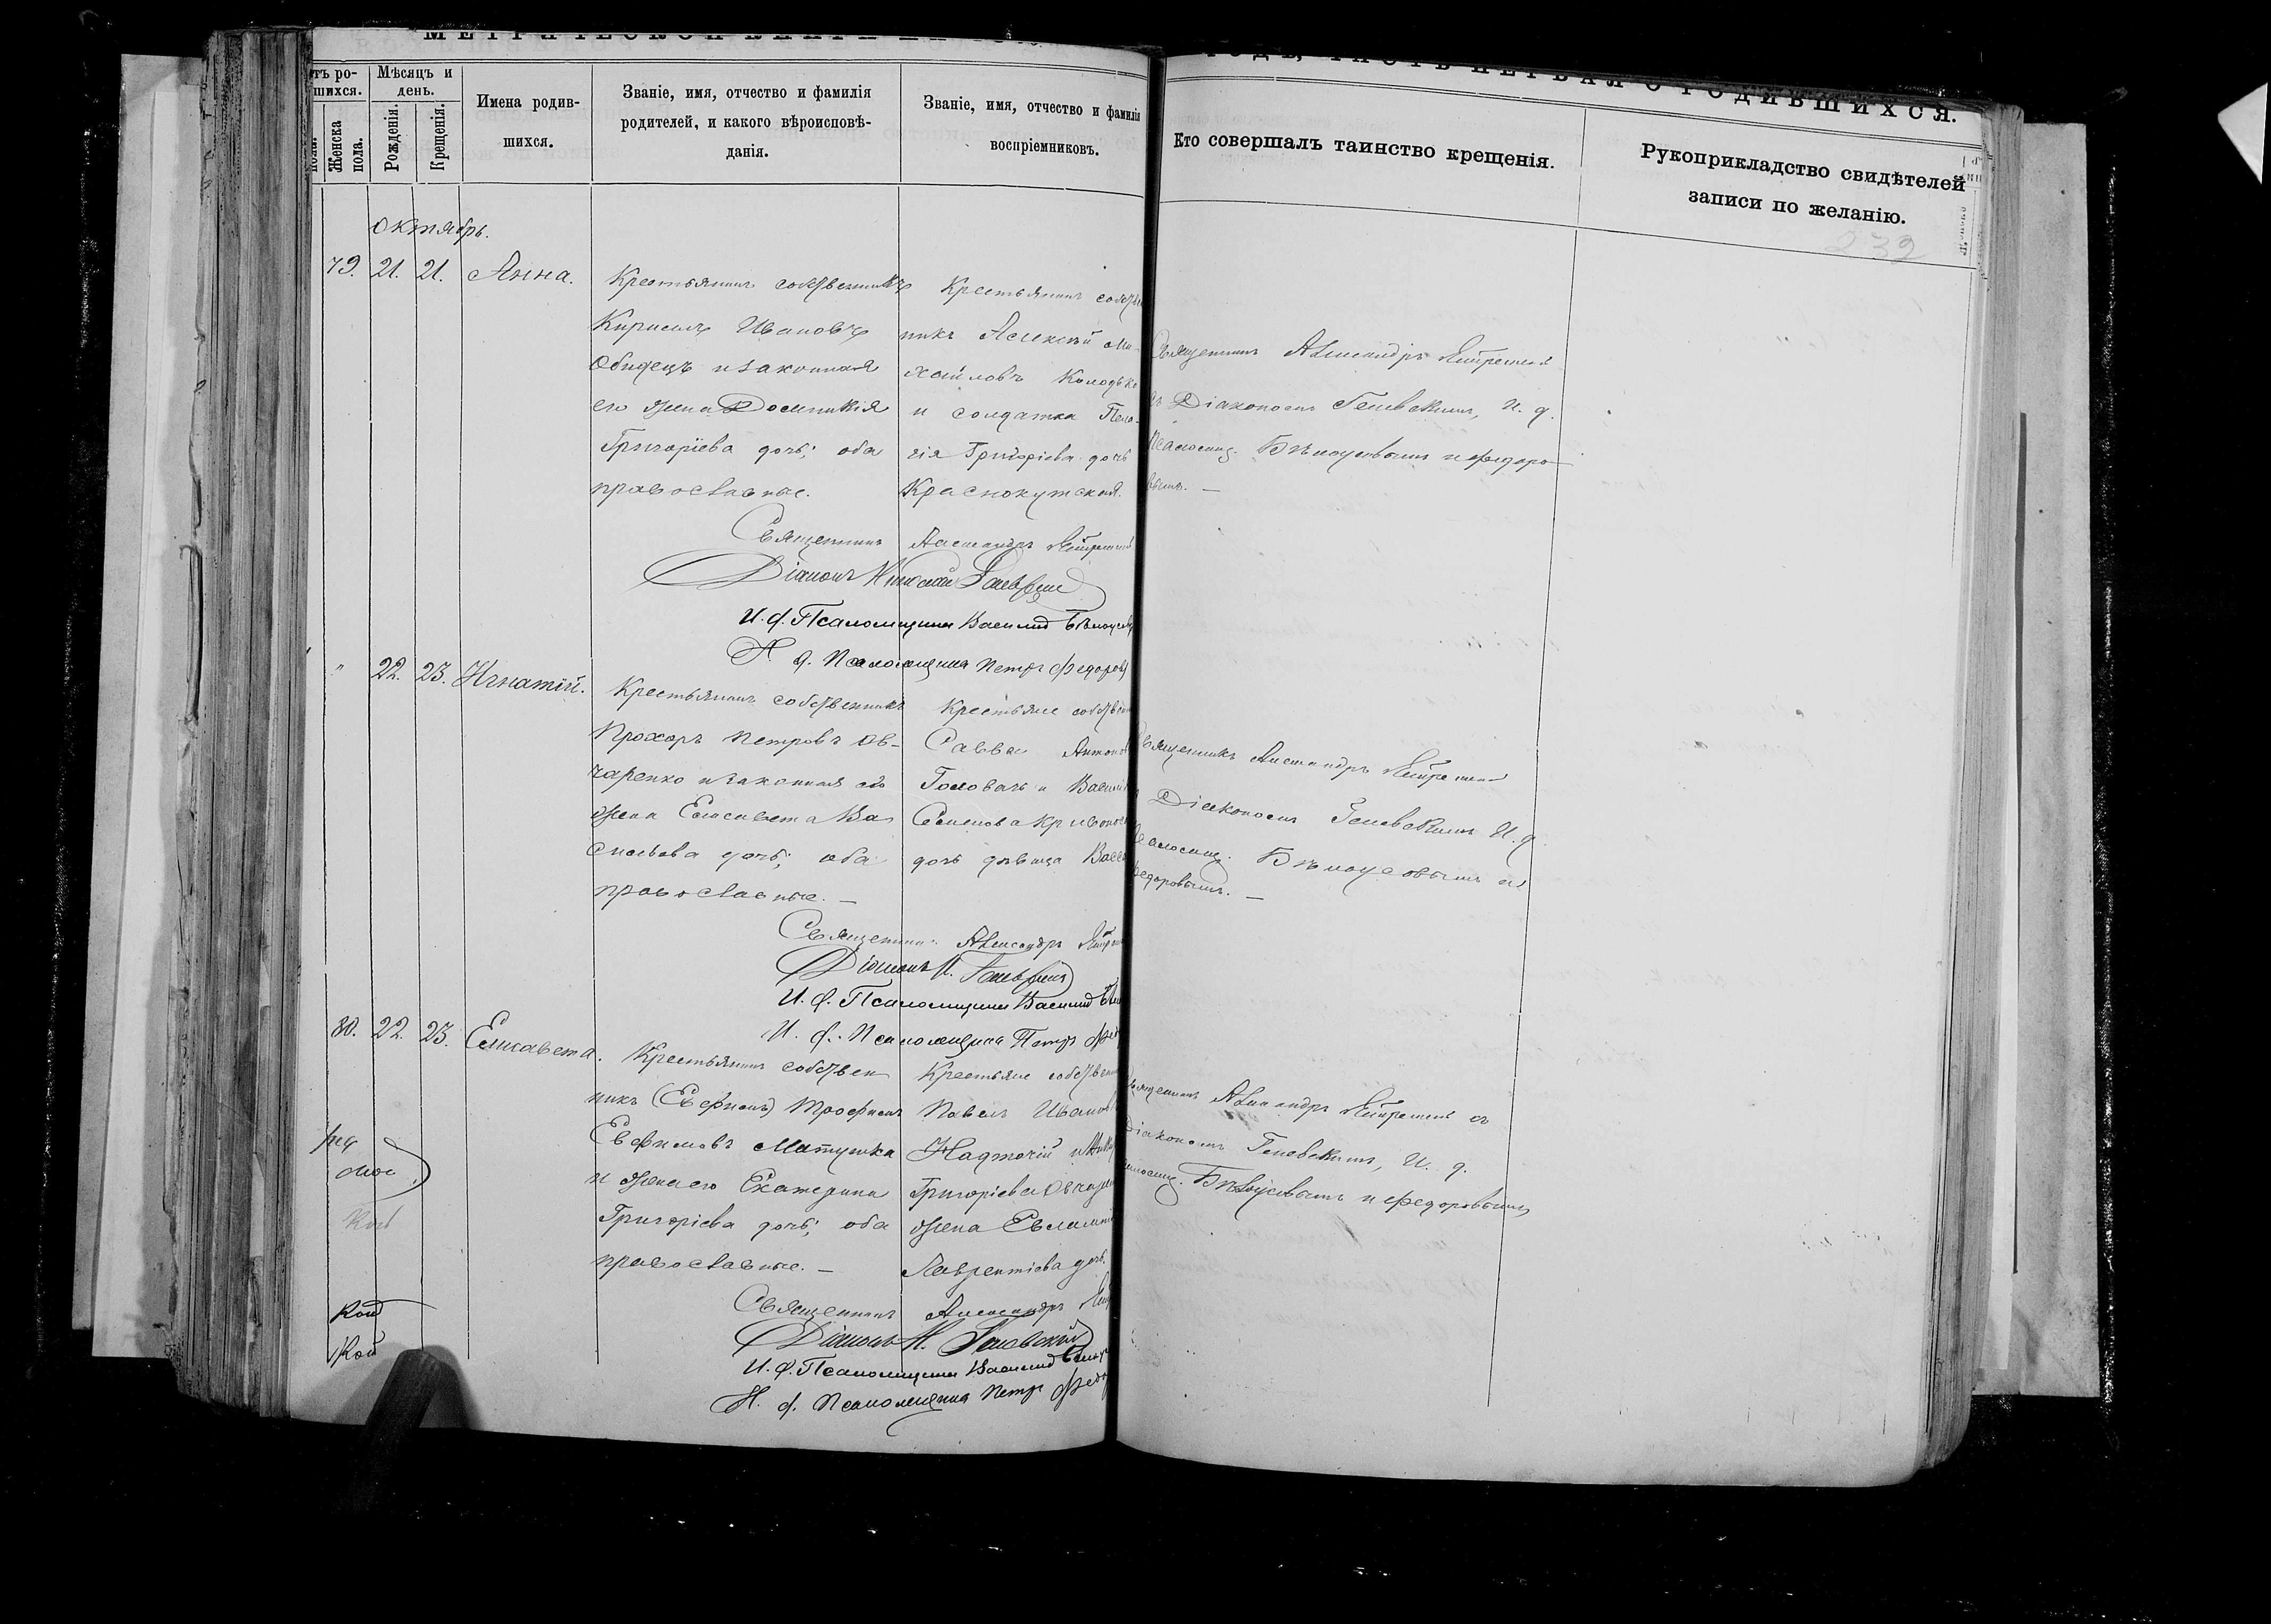 шихся.
Женска пола.
Мѣсяцъ и день.
Рожденія.
Крещенія.
Имена родив-
шихся.
Званіе, имя, отчество и фамилія
родителей, и какого вѣроисповѣ-
данія.
Званіе, имя, отчество и фамилія
воспріемниковъ.
Кто совершалъ таинство крещенія.
Рукоприкладство свидѣтелей
записи по желанію.
232
Октябрь.
79. 21. 21. Анна.
Крестьянинъ собственникъ
Кириллъ Ивановъ
Обидецъ и законная
его жена Домникія
Григоріева дочь; оба
православные.
Крестьянинъ собствен
никъ Алексѣй Ми-
хайловъ Колодѣ
и солдатка Пела-
гія Григоріева дочь
Краснокутская.
Священникъ Александръ
Діакономъ Геневскимъ, И. д.
Псаломщ. Бѣлоусовымъ и Федоро-
вымъ. —
Священникъ Александръ
Діаконъ Николай
И. д. Псаломщика Василий Бѣлоусовъ
И. д. Псаломщика Петръ Федоровъ
" 22. 23. Игнатій.
Крестьянинъ собственникъ
Прохоръ Петровъ Ов-
чаренко и законная его
жена Елисавета Ва
сильева дочь; оба
православные. —
Крестьяне собствен
Савва Антонов
Головачь и Васили
Семенова Кривонос
дочь дѣвица Васс
Священникъ Александръ
Діакономъ Геневскимъ И. д.
Псаломщ. Бѣлоусовымъ и
Федоровымъ. —
Священникъ Александръ
Діаконъ Н.
И. д. Псаломщика Василий
И. д. Псаломщика Петръ Фед
80. 22. 23. Елисавета.
Крестьянинъ собствен
никъ (Евфимъ) Трофимъ
Евфимовъ Матушка
и жена его Екатерина
Григоріева дочь; оба
православные. —
Крестьяне собствен
Павелъ Иванов
Надточій и
Григоріева Овчарен
жена Евлампія
Лаврентіева дочь.
Священникъ Александръ съ
Діакономъ Геневскимъ, И. д.
Псаломщ. Бѣлоусовымъ и Федоровымъ
Священникъ Александръ
Діаконъ Н. Геневскій
И. д. Псаломщика Василий
И. д. Псаломщика Петръ Федор